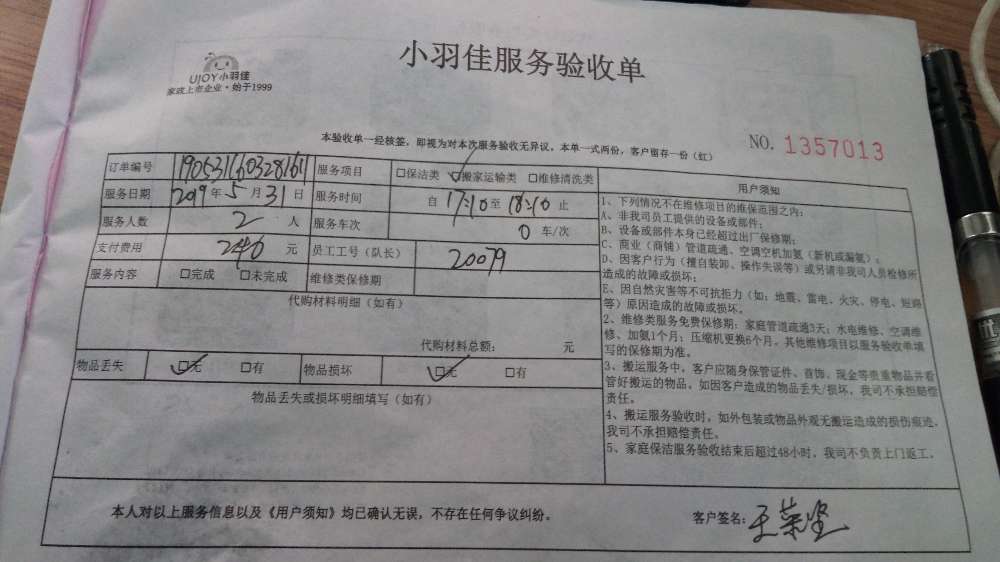 UJOY小羽佳
家政上市企业·始于1999
小羽佳服务验收单
本验收单一经核签，即视为对本次服务验收无异议，本单一式两份，客户留存一份（红）
NO. 1357013
订单编号 190531160328161 服务项目 □保洁类 ☑搬家运输类 □维修清洗类
服务日期 2019年5月31日 服务时间 自17:10至18:10止
服务人数 2人 服务车次 0车/次
支付费用 240元 员工工号（队长） 20079
服务内容 □完成 □未完成 维修类保修期
代购材料明细（如有）
代购材料总额： 元
物品丢失 ☑无 □有 物品损坏 ☑无 □有
物品丢失或损坏明细填写（如有）
用户须知
1、下列情况不在维修项目的维保范围之内：
A、非我司员工提供的设备或部件；
B、设备或部件本身已经超过出厂保修期；
C、商业（商铺）管道疏通、空调空机加氨（新机或漏氨）；
D、因客户行为（擅自装卸、操作失误等）或另请非我司人员检修所
造成的故障或损坏；
E、因自然灾害等不可抗拒力（如：地震、雷电、火灾、停电、短路
等）原因造成的故障或损坏。
2、维修类服务免费保修期：家庭管道疏通3天；水电维修、空调维
修、加氨1个月；压缩机更换6个月。其他维修项目以服务验收单填
写的保修期为准。
3、搬运服务中，客户应随身保管证件、首饰、现金等贵重物品并看
管好搬运的物品，如因客户造成的物品丢失/损坏，我司不承担赔偿
责任。
4、搬运服务验收时，如外包装或物品外观无搬运造成的损伤痕迹，
我司不承担赔偿责任。
5、家庭保洁服务验收结束后超过48小时，我司不负责上门返工。
本人对以上服务信息以及《用户须知》均已确认无误，不存在任何争议纠纷。
客户签名：王荣坚